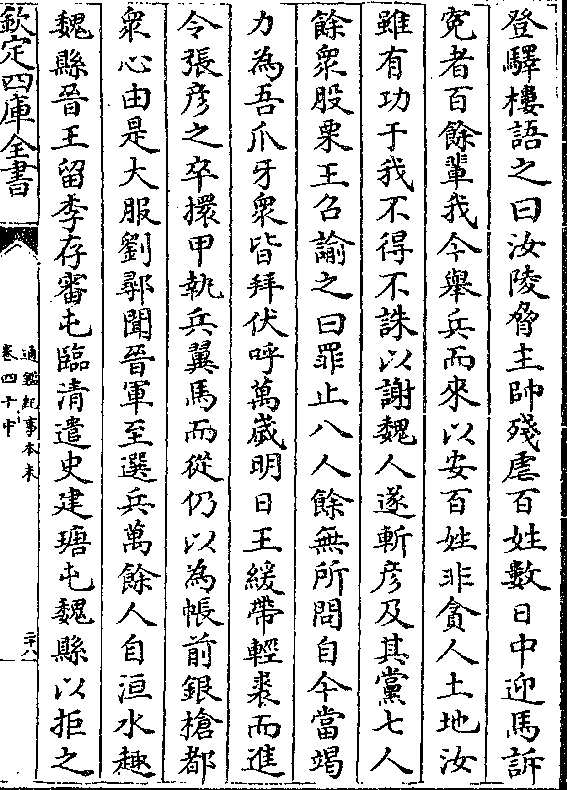 登驛樓語之曰汝陵脅主帥殘虐百姓數日中迎馬訴
寃者百餘輩我今舉兵而來以安百姓非貪人土地汝
雖有功于我不得不誅以謝魏人遂斬彦及其黨七人
餘衆股栗王召諭之曰罪止八人餘無所問自今當竭
力為吾爪牙衆皆拜伏呼萬歲明日王緩帶輕裘而進
令張彦之卒擐甲執兵翼馬而從仍以為帳前銀槍都
衆心由是大服劉鄩聞晉軍至選兵萬餘人自洹水趣
魏縣晉王留李存審屯臨清遣史建瑭屯魏縣以拒之
欽定四庫全書
通鑑紀事本末
卷四十中
二十八